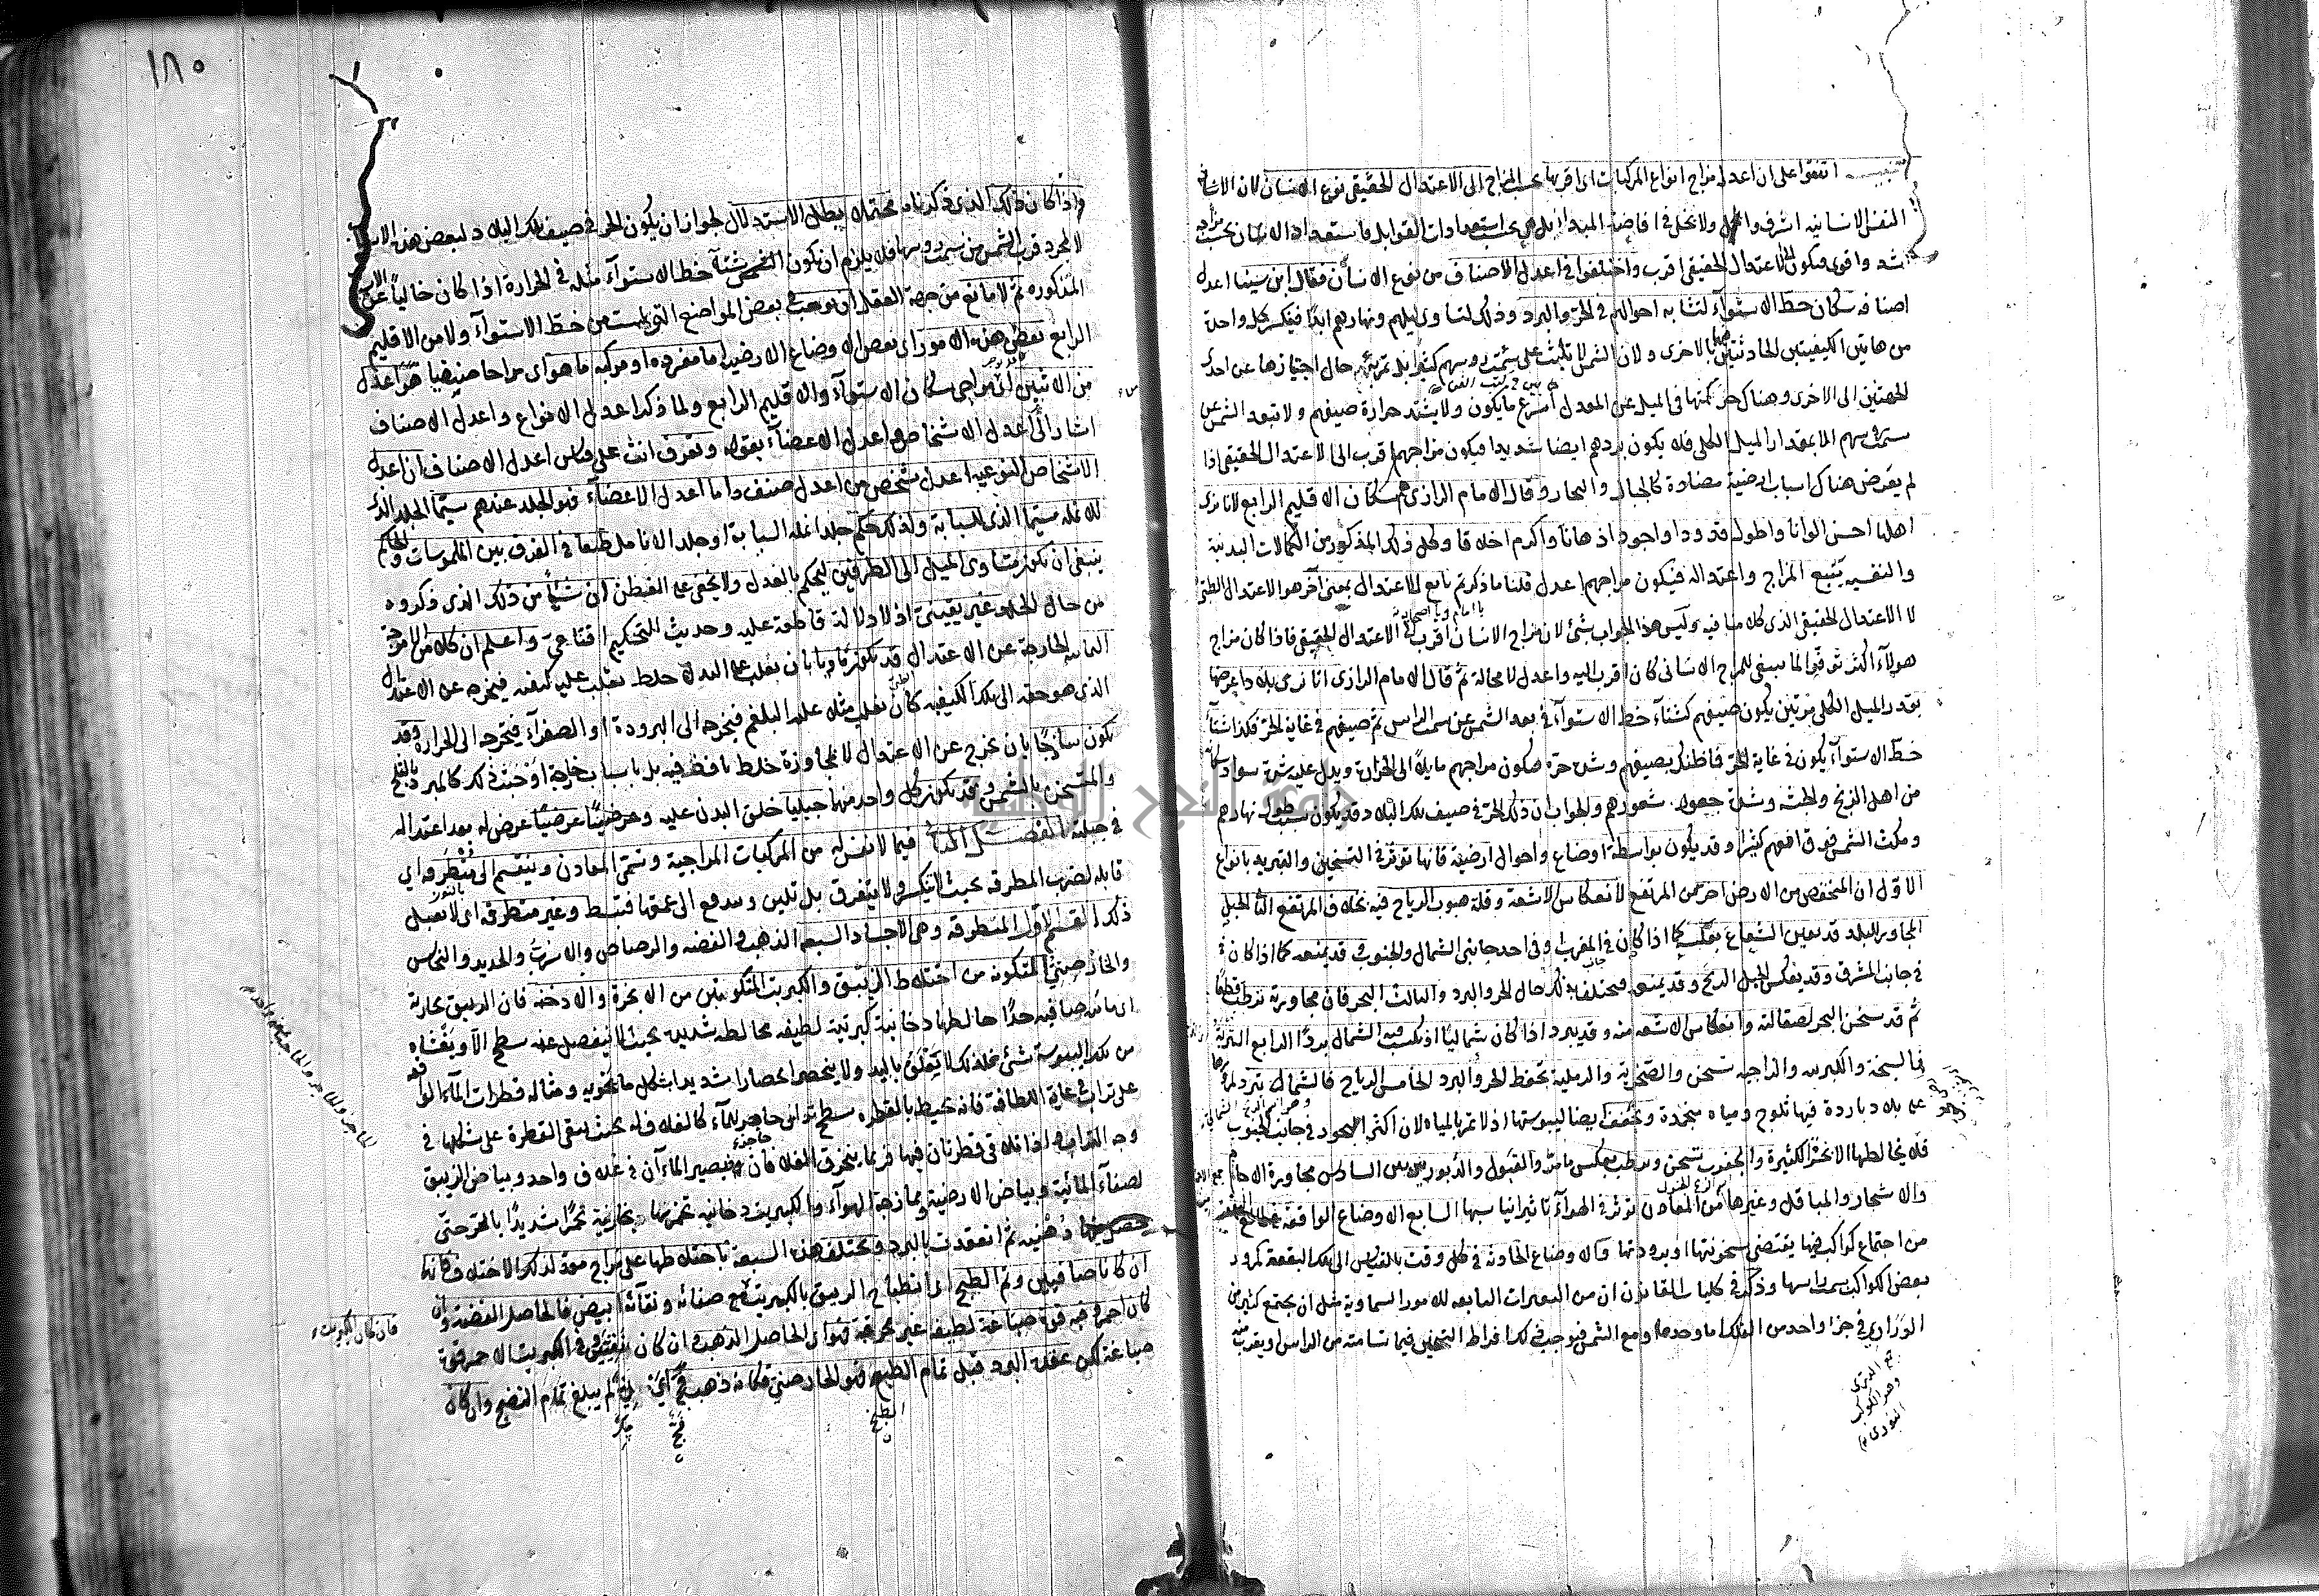 تنبيه اتفقوا على ان اعدل مزاج انواع المركبات اى اقربها بحسب المزاج الى الاعتدال الحقيقى نوع الانسان لان الانسانى
النفس الانسانية اشرف واكمل ولا بخل فى افاضة المبدا بل هى بحسب استعدادات القوابل فاستعداد الانسان بحسب مزاجه
اشد واقوى فيكون الى الاعتدال الحقيقى اقرب واختلفوا فى اعدل الاصناف من نوع الانسان فقال ابن سينا اعدل
اصنافه سكان خط الاستوآء لتشابه احوالهم فى الحر والبرد وذلك لتساوى ليلهم ونهارهم ابدًا فيكسر كل واحدة
من هاتين الكيفيتين الحادثتين منهما بالاخرى ولان الشمس لا تلبث على سمت رؤسهم كثيرا بل تمر به حال اجتيازها عن احدى
الجهتين الى الاخرى وهناك حركتها فى الميل عن المعدل اسرع ما يكون ولا يشتد حرارة صيفهم ولا تبعد الشمس عن
سمت رؤسهم الا بمقدار الميل الكلى فلا يكون بردهم ايضا شديدا فيكون مزاجهم اقرب الى الاعتدال الحقيقى اذا
لم يعرض هناك اسباب ارضية مضادة كالجبال والبحار وقال الامام الرازى هم سكان الاقليم الرابع لانا نرى
اهلها احسن الوانا واطول قدودا واجود اذهانا واكرم اخلاقا وكل ذلك المذكور من الكمالات البدنية
والنفسية يتبع المزاج واعتداله فيكون مزاجهم اعدل قلنا ما ذكرتم تابع للاعتدال بمعنى آخر هو الاعتدال الطبى
لا الاعتدال الحقيقى الذى كلامنا فيه وليس هذا الجواب بشئ لان مزاج الانسان اقرب الى الاعتدال الحقيقى فاذا كان مزاج
هولآء اكثر توفرا لما ينبغى للمزاج الانسانى كان اقرب اليه واعدل لا محالة ثم قال الامام الرازى انا نرى بلادا عرضها
بقدر الميل الكلى مرتين يكون صيفهم كشتآء خط الاستوآء فى بعد الشمس عن سمت الراس ثم صيفهم فى غاية الحر فكذا شتآء
خط الاستوآء يكون فى غاية الحر فما ظنك بصيفهم وشدة حره فيكون مزاجهم مايلا الى الحرارة ويدل عليه شدة سواد سكانه
من اهل الزنج والحبشة وشدة جعودة شعورهم والجواب ان ذلك الحر فى صيف تلك البلاد قد يكون بسبب طول نهارهم
ومكث الشمس فوق افقهم كثيرا وقد يكون بواسطة اوضاع واحوال ارضية فانها تؤثر فى التسخين والتبريد بانواع
الاول ان المنخفض من الارض احر من المرتفع لانعكاس الاشعة وقلة هبوب الرياح فيه بخلاف المرتفع الثانى الجبل
المجاور للبلد قد يعين الشعاع بعكسه كما اذا كان فى المغرب او فى احد جانبى الشمال والجنوب وقد يمنعه كما اذا كان فى
فى جانب المشرق وقد يعكس الجبل الريح وقد يمنعه فيختلف بذلك حال الحر والبرد والثالث البحر فان مجاورته ترطب قطعا
ثم قد سخن البحر لصقالته وانعكاس الاشعة منه وقد يبرد اذا كان شماليًا اذ يكسب فيه الشمال بردًا الرابع التربة
فالسبخة والكبريتية والزاجية تسخن والصخرية والرملية تحفظ الحر والبرد الخامس الرياح فالشمال تبرد لمرورها
على بلاد باردة فيها ثلوج ومياه منجمدة وتجفف ايضا ليبوستها اذ لا تمر بالمياه لان اكثر البحور فى جانب الجنوب
فلا يخالطها الابخرة الكثيرة والجنوب تسخن وترطب بعكس ما مر والقبول والدبور بين بين السادس مجاورة الاجام
والاشجار والمباقل وغيرها من المعادن تؤثر فى الهوآء تاثيرا يناسبها السابع الاوضاع الواقعة
من اجتماع كواكب فيها يقتضى سخونتها او برودتها والاوضاع الحادثة فى كل وقت بالقياس الى تلك البقعة كمرور
بعض الكواكب بسمت راسها وذكر فى كليات القانون ان من التغيرات التابعة للامور السماوية مثل ان يجتمع كثير من
الدرارى فى جزء واحد من الفلك اما وحدها او مع الشمس فيوجب ذلك افراط التسخين فيما تسامته من الراس او يقرب منه
جمع الدرى
وهو الكوكب
النورى
١٨٠
واذا كان ذلك الذى ذكرناه محتملا يبطل الاستدلال لجواز ان يكون الحر فى صيف تلك البلاد لبعض هذه الاسباب
لا لمجرد قرب الشمس من سمت رؤسها فلا يلزم ان يكون شتآء خط الاستوآء مثله فى الحرارة اذا كان خاليا عن الاسباب
المذكوره ثم لا مانع من جهة العقل ان توجب فى بعض المواضع التى ليست من خط الاستوآء ولا من الاقليم
الرابع بعض هذه الامور اى بعض الاوضاع الارضية اما مفردة او مركبة ما هو اى مزاجا صنفيا هو اعدل
من الاثنين اى مزاجى سكان الاستوآء والاقليم الرابع ولما ذكر اعدل الانواع واعدل الاصناف
اشار الى اعدل الاشخاص واعدل الاعضآء بقوله وتعرف انت على قياس اعدل الاصناف ان اعدل
الاشخاص النوعية اعدل شخص من اعدل صنف واما اعدل الاعضآء فهو الجلد عندهم سيما الجلد الذى
للانملة سيما الذى للسبابة ولذلك حكم جلد انملة السبابة او جلد الانامل طبعا فى الفرق بين الملموسات والحاكم
ينبغى ان يكون متساوى الميل الى الطرفين ليحكم بالعدل ولا يخفى على الفطن ان شيئًا من ذلك الذى ذكروه
من حال الجلد غير يقينى اذ لا دلالة قاطعة عليه وحديث التحكيم اقناعى واعلم ان كلا من الامزجة
الثمانية الخارجة عن الاعتدال قد يكون ماديا بان يغلب على البدن خلط يغلب عليه كيفية فيخرجه عن الاعتدال
الذى هو حقه الى تلك الكيفية كان يغلب مثلا عليه البلغم فيخرجه الى البرودة او الصفرآء فيخرجه الى الحرارة وقد
يكون ساذجًا بان يخرج عن الاعتدال لا بمجاوزة خلط نافذ فيه بل باسباب خارجة اوجبت ذلك كالمبرد بالثلج
والمتسخن بالشمس وقد يكون كل واحد منها جبليا خلق البدن عليه وعرضيًا عرض له بعد اعتداله
فى جبلته الفصل الثانى فيما لا نفس له من المركبات المزاجية وتسمى المعادن وينقسم الى متطرقة اى
قابلة لضرب المطرقة بحيث لا ينكسر ولا يتفرق بل تلين وتندفع الى عمقها فتنبسط وغير متطرقة اى لا تقبل
ذلك القسم الاول المتطرقة وهى الاجساد السبعة الذهب والفضة والرصاص والاسرب والحديد والنحاس
والخارصينى المتكونة من اختلاط الزيبق والكبريت المتكونتين من الابخرة والادخنة فان الزيبق بخارية
اى مائية صافية جدًا خالطها دخانية كبرتية لطيفة مخالطة شديدة بحيث لا ينفصل عنه سطح الا ويغشاه
من تلك اليبوسة شئ فلذلك لا يعلق باليد ولا ينحصر انحصارا شديدا بشكل ما يحويه ومثاله قطرات المآء الواقعة
على تراب فى غاية اللطافة فانه يحيط بالقطرة سطح ترابى حاصر للمآء كالغلاف له بحيث يبقى القطرة على شكلها فى
وجه التراب واذا تلاقى قطرتان فيها فربما ينخرق الغلافان ويصير المآءآن فى غلاف واحد وبياض الزيبق
لصفآء المائية وبياض الارضية وممازجة الهوآء والكبريت دخانية تخمرها بخارية تخمرًا شديدًا بالحر حتى
حصل فيها دهنية ثم انعقدت بالبرد ويختلف هذه السبعة باختلاطهما على مزاج معد لذلك الاختلاف فانهما
ان كانا صافيين وتم الطبخ اى انطباخ الزيبق بالكبريت مع صفائه ونقائه ابيض فالحاصل الفضة وان
كان احمر وفيه قوة صباغة لطيفة غير محرقة فهو اى الحاصل الذهب وان كان نقيين وفى الكبريت الاحمر قوة
صباغة لكن عقده البرد قبل تمام الطبخ فهو الخارصينى فكانه ذهب فج اى نئ لم يبلغ تمام النضج وان كان
فان كان الكبريت
الطبخ
فج